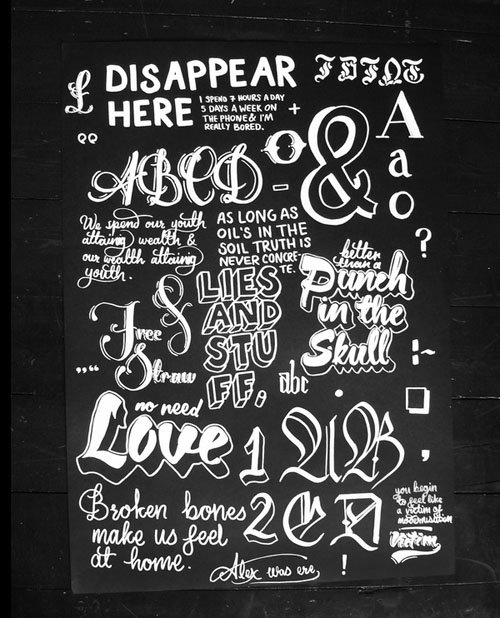 £
DISAPPEAR
HERE
I SPEND 7 HOURS A DAY
5 DAYS A WEEK ON
THE PHONE & I'M
REALLY BORED.
+
A
a
o
&
ABCD
-
?
We spend our youth
attaing wealth &
our wealth attaing
youth.
AS LONG AS
OIL'S IN THE
SOIL TRUTH IS
NEVER CONCRE-
TE.
better
than a
Punch
in the
Skull
LIES
AND
STU
FF,
Free
Straw
abc
no need
Love
1
2
AB
CD
Broken bones
make us feel
at home.
you begin
to feel like
a victim of
modernisation
Victim
Alex was ere
!